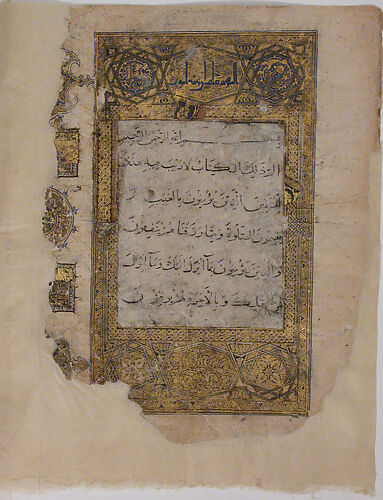 بسم الله الرحمن الرحيم
الم ذلك الكتاب لا ريب فيه هدى
للمتقين الذين يؤمنون بالغيب و
يقيمون الصلوة ومما رزقناهم ينفقون
والذين يؤمنون بما أنزل إليك وما أنزل
من قبلك وبالآخرة هم يوقنون